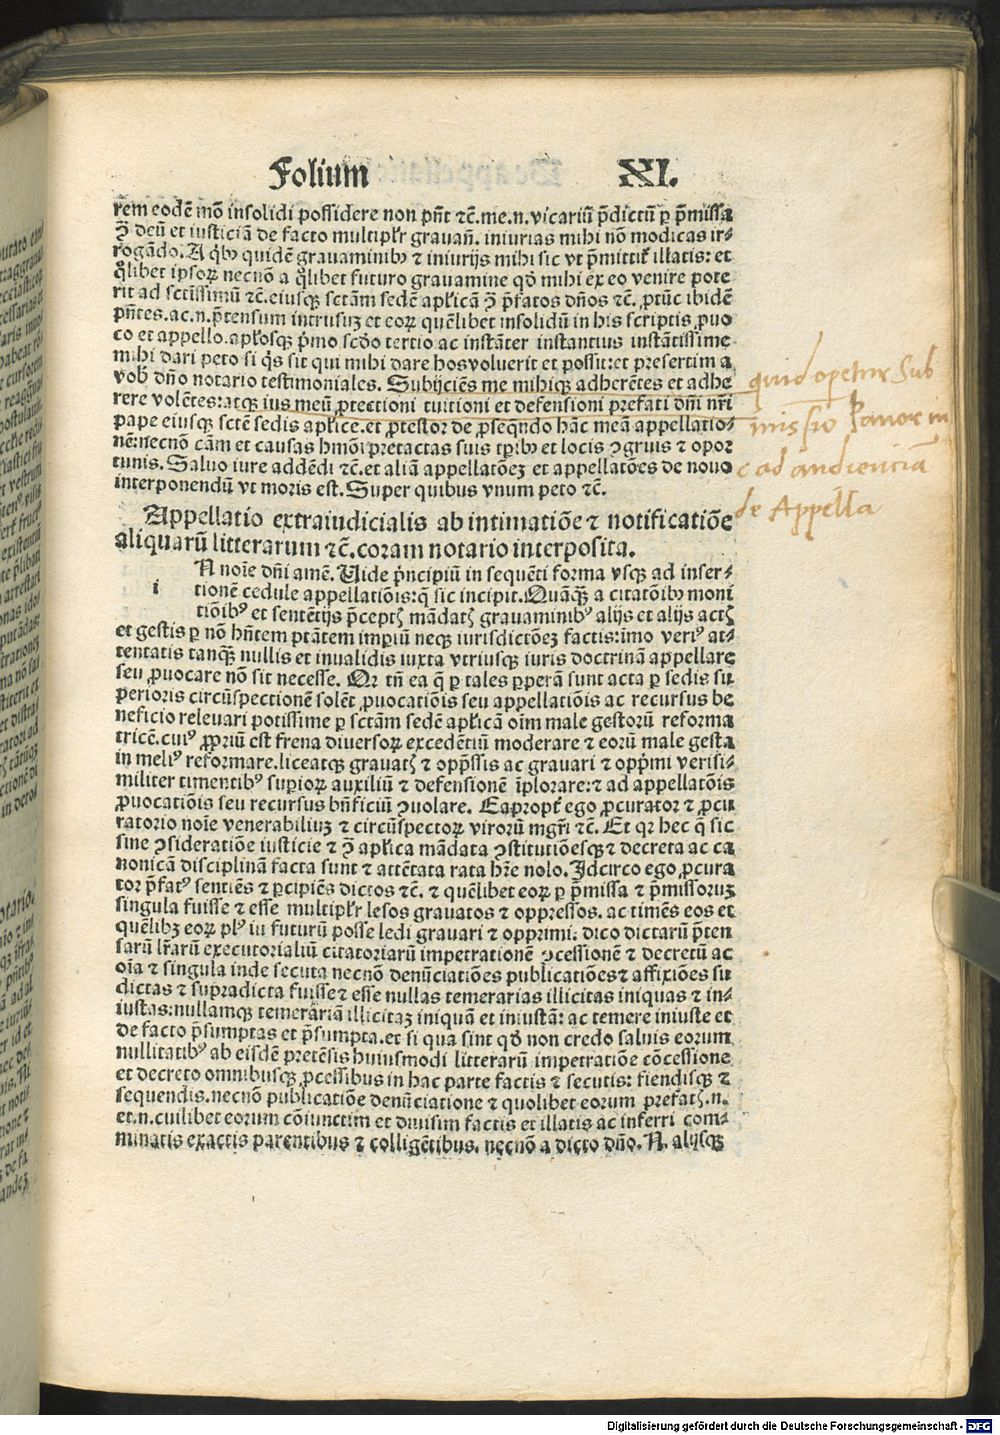 Folium XI.
rem eodē mō insolidi possidere non pn̄t ⁊c̄.me.n.vicariū p̄dictū ꝑ p̄missa
ꝯ̄ deū et iusticiā de facto multipl̄r gravan̄. iniurias mihi nō modicas ir⸗
rogādo. A qͥbꝰ quidē gravaminibꝰ ⁊ iniurijs mihi sic vt p̄mittit̄ illatis: et
qͦlibet ipsoꝝ necnō a qͦlibet futuro gravamine qd̄ mihi ex eo venire pote
rit ad sctīssimū ⁊c̄.eiusqꝫ sctām sedē apl̄icā ꝯ̄ p̄fatos dn̄os ⁊c̄. ꝓtūc ibidē
pn̄tes.ac.n.p̄tensum intrusuꝫ et eoꝝ quēlibet insolidū in his scriptis ꝓuo
co et appello.apl̄osqꝫ pͥmo scd̄o tertio ac instāter instantius instātissime
mihi dari peto si qͥs sit qui mihi dare hos voluerit et possit: et presertim a
vob̄ dn̄o notario testimoniales. Subijciēs me mihiqꝫ adherētes et adhe
rere volētes: atqꝫ ius meū ꝓtectioni tuitioni et defensioni prefati dn̄i nr̄i
pape eiusqꝫ sctē sedis apl̄ice.et ꝓtestor de ꝓseqndo hāc meā appellatio⸗
nē: necnō cām et causas hmōi pretactas suis tꝑibꝰ et locis ꝯgruis ⁊ opor
tunis. Saluo iure addēdi ⁊c̄.et aliā appellatōeꝫ et appellatōes de nouo
interponendū vt moris est. Super quibus vnum peto ⁊c̄.
Appellatio extraiudicialis ab intimatiōe ⁊ notificatiōe
aliquarū litterarum ⁊c̄.coram notario interposita.
i N noīe dn̄i amē. Vide pͥncipiū in sequēti forma vsqꝫ ad inser⸗
tionē cedule appellatiōis: q̄ sic incipit. Quāqꝫ̄ a citatōibꝰ moni
tiōibꝰ et sentētijs p̄ceptꝭ mādatꝭ gravaminibꝰ alijs et alijs actꝭ
et gestis ꝑ nō hn̄tem ptātem imꝑiū neqꝫ iurisdictōeꝫ factis: imo veriꝰ at⸗
tentatis tanqꝫ̄ nullis et inualidis iuxta vtriusqꝫ iuris doctrinā appellare
seu ꝓuocare nō sit necesse. Qr tn̄ ea q̄ ꝑ tales ꝑperā sunt acta ꝑ sedis su
perioris circūspectionē solēt ꝓuocatiōis seu appellatiōis ac recursus be
neficio releuari potissime ꝑ sctām sedē apl̄icā oīm male gestorū reforma
tricē.cuiꝰ ꝓpriū est frena diversoꝝ excedētiū moderare ⁊ eorū male gesta
in meliꝰ reformare.liceatqꝫ gravatꝭ ⁊ opp̄ssis ac grauari ⁊ opp̄mi verisi⸗
militer timentibꝰ supioꝝ auxiliū ⁊ defensionē īplorare: ⁊ ad appellatōis
ꝓuocatiōis seu recursus bn̄ficiū ꝯuolare. Eapropt̄ ego ꝓcurator ⁊ ꝓcu
ratorio noīe venerabiliuꝫ ⁊ circūspectoꝝ virorū mgr̄i ⁊c̄. Et qr hec q̄ sic
sine ꝯsideratiōe iusticie ⁊ ꝯ̄ apl̄ica mādata ꝯstitutiōesqꝫ ⁊ decreta ac ca
nonicā disciplinā facta sunt ⁊ attētata rata hr̄e nolo. Idcirco ego ꝓcura
tor p̄fatꝰ sentiēs ⁊ ꝑcipiēs dictos ⁊c̄. ⁊ quēlibet eoꝝ ꝑ p̄missa ⁊ p̄missoruꝫ
singula fuisse ⁊ esse multipl̄r lesos grauatos ⁊ oppressos. ac timēs eos et
quēlibꝫ eoꝝ plꝰ in futurū posse ledi grauari ⁊ opprimi: dico dictarū p̄ten
sarū lr̄arū executorialiū citatoriarū impetrationē ꝯcessionē ⁊ decretū ac
oīa ⁊ singula inde secuta necnō denūciatiōes publicatiōes ⁊ affixiōes su
dictas ⁊ supradicta fuisse ⁊ esse nullas temerarias illicitas iniquas ⁊ in⸗
iustas: nullamqꝫ temerāriā illicitaꝫ iniquā et iniustā: ac temere iniuste et
de facto p̄sumptas et p̄sumpta.et si qua sint qd̄ non credo saluis eorum
nullitatibꝰ ab eisdē pretēsis huiusmodi litterarū impetratiōe cōcessione
et decreto omnibusqꝫ ꝓcessibus in hac parte factis ⁊ secutis: fiendisqꝫ ⁊
sequendis.necnō publicatiōe denūciatione ⁊ quolibet eorum prefatꝭ.n.
et.n.cuilibet eorum cōiunctim et diuisim factis et illatis ac inferri com⸗
minatis exactis parentibus ⁊ colligētibus. necnō a dicto dn̄o. N. alijsqꝫ
quid opetur Sub
missio Panor in
c ad audienciā
de Appella
Digitalisierung gefördert durch die Deutsche Forschungsgemeinschaft - DFG